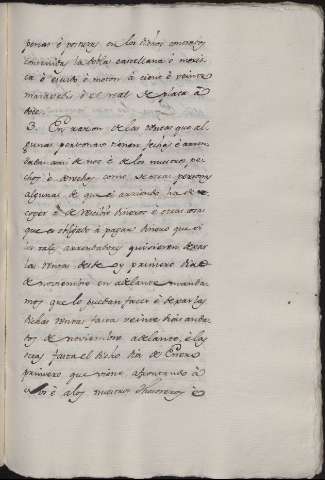 penas è posturas en los dichos contratos
contenida la dobla castellana è moris
ca è escudo è moton à ciento è veinte
maravedis è el real de plata à
doce.
3. En razon de las rentas que al
gunas personas tienen fechas è arren
dadas ansi de nos è de los nuestros pe
chos è derechos como de otras personas
algunas de que el arriendo ha de re
coger è de recibir dineros è otras cosas
que es obligado à pagar dinero que si
los tales arrendadores quisieren dexar
las rentas desde oy primero dia
de noviembre en adelante manda
mos que lo puedan facer è dexar las
dichas rentas fasta veinte dias anda
dos de noviembre adelante, è las
otras fasta el dicho dia de Enero
primero que viene afrontando à
nos è a los nuestros thesoreros è